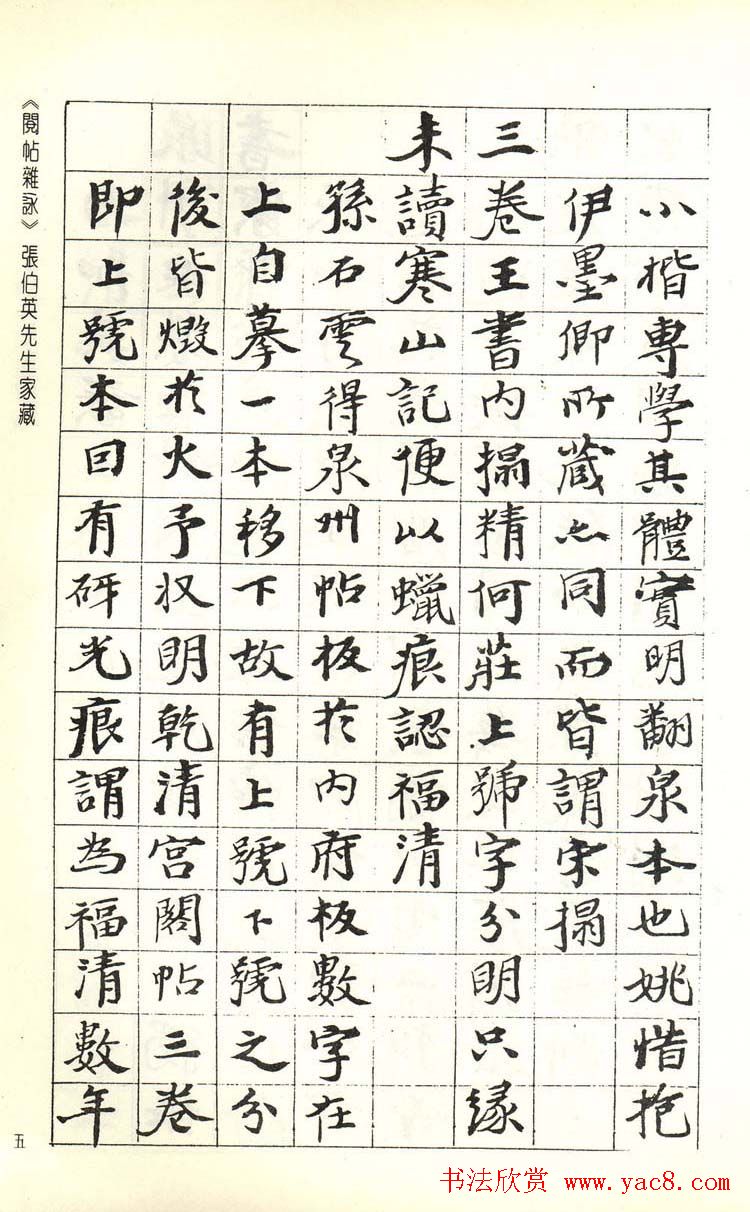 小楷專學其體實明翻泉本也姚惜抱
伊墨卿所藏亦同而皆謂宋搨
三卷王書內搨精何莊上號字分明只緣
未讀寒山記便以蠟痕認福清
孫石雲得泉州帖板於內府板數字在
上自摹一本移下故有上號下號之分
後皆燬於火予収明乾清宮閣帖三卷
即上號本回有砑光痕謂為福清數年
《閱帖雜詠》張伯英先生家藏
五
书法欣赏 www.yac8.com